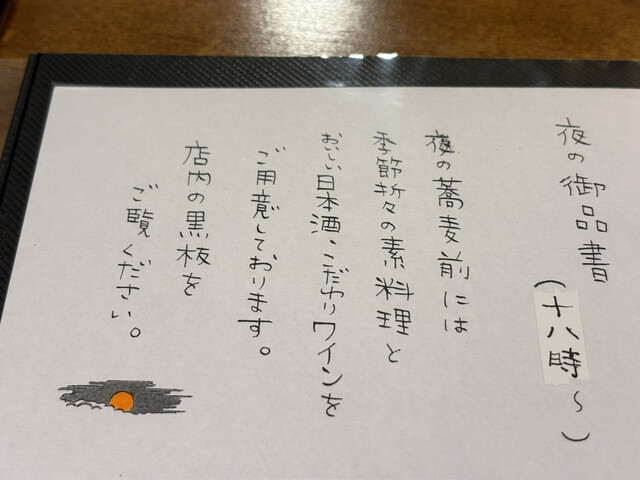 夜の御品書
(十八時〜)
夜の蕎麦前には
季節折々の素料理と
おいしい日本酒、こだわりワインを
ご用意しております。
店内の黒板を
ご覧ください。